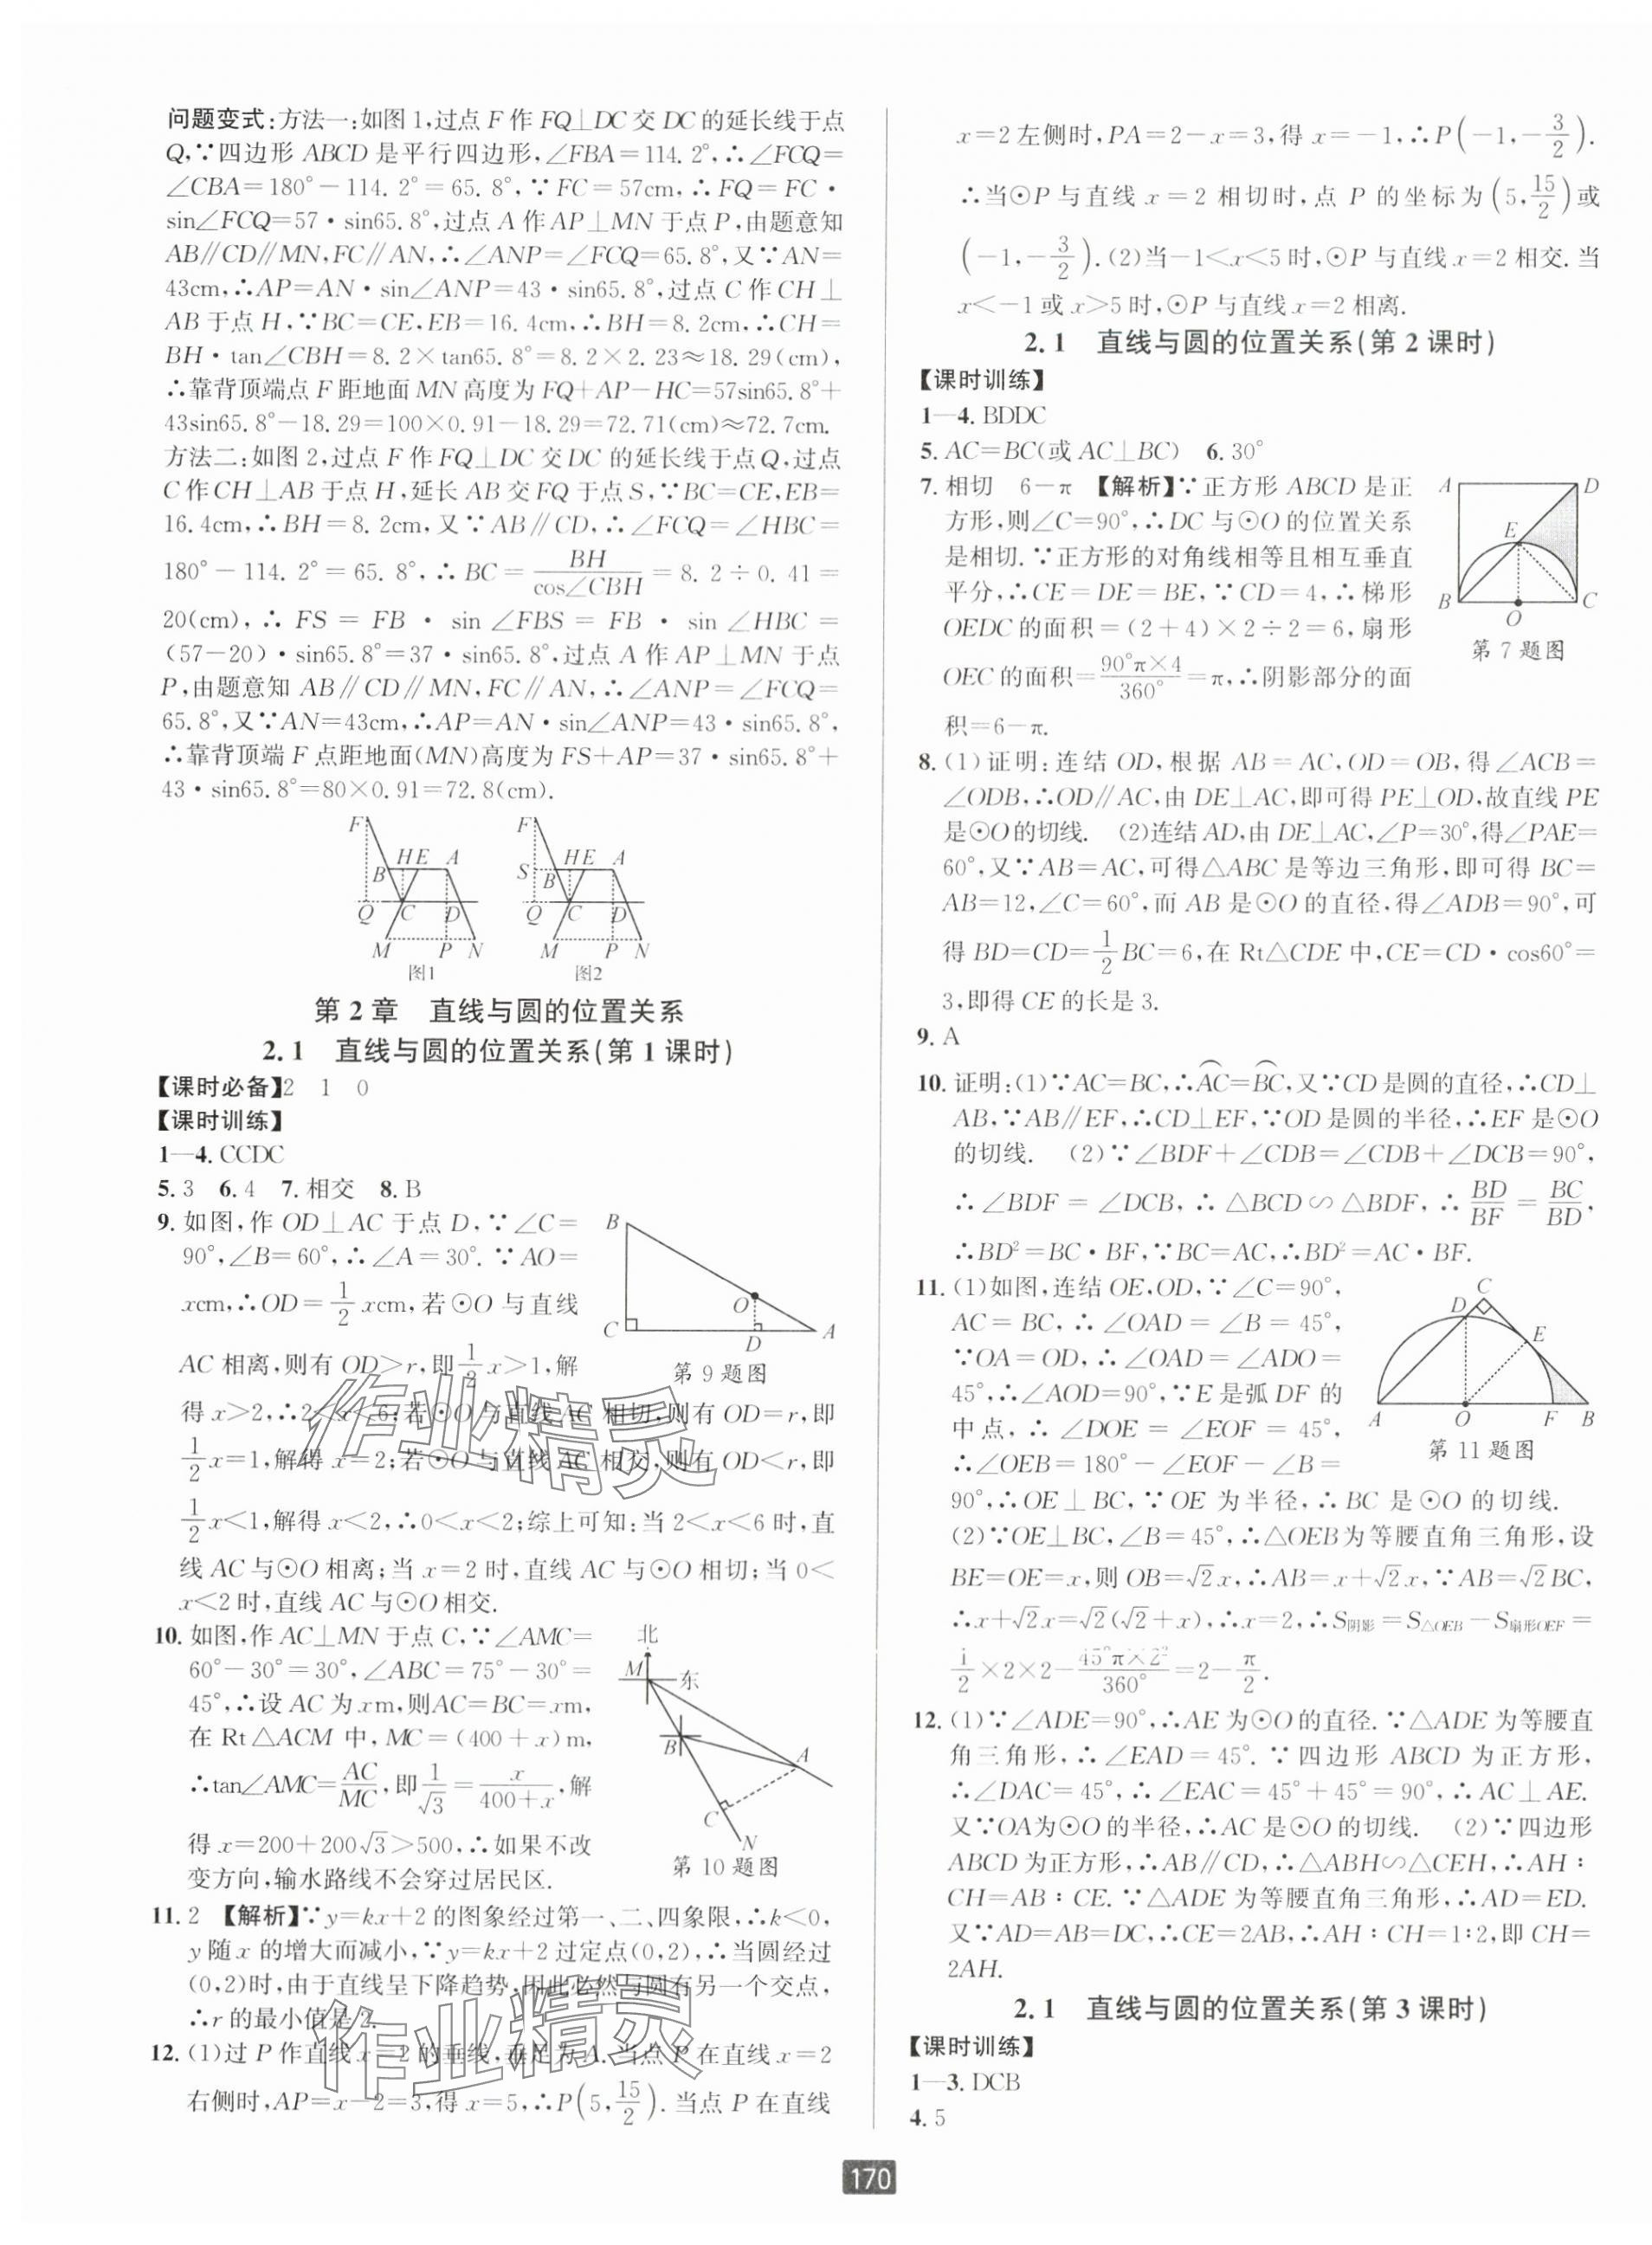 问题变式:方法一:如图1,过点F作FQ⊥DC交DC的延长线于点
Q,∵四边形ABCD是平行四边形,∠FBA=114.2°,∴∠FCQ=
∠CBA=180°-114.2°=65.8°,∵FC=57cm,∴FQ=FC·
sin∠FCQ=57·sin65.8°,过点A作AP⊥MN于点P,由题意知
AB∥CD∥MN,FC∥AN,∴∠ANP=∠FCQ=65.8°,又∵AN=
43cm,∴AP=AN·sin∠ANP=43·sin65.8°,过点C作CH⊥
AB于点H,∵BC=CE,EB=16.4cm,∴BH=8.2cm,∴CH=
BH·tan∠CBH=8.2×tan65.8°=8.2×2.23≈18.29(cm),
∴靠背顶端点F距地面MN高度为FQ+AP-HC=57sin65.8°+
43sin65.8°-18.29=100×0.91-18.29=72.71(cm)≈72.7cm.
方法二:如图2,过点F作FQ⊥DC交DC的延长线于点Q,过点
C作CH⊥AB于点H,延长AB交FQ于点S,∵BC=CE,EB=
16.4cm,∴BH=8.2cm,又∵AB∥CD,∴∠FCQ=∠HBC=
180°-114.2°=65.8°,∴BC=BH/cos∠CBH=8.2÷0.41=
20(cm),∴FS=FB·sin∠FBS=FB·sin∠HBC=
(57-20)·sin65.8°=37·sin65.8°,过点A作AP⊥MN于点
P,由题意知AB∥CD∥MN,FC∥AN,∴∠ANP=∠FCQ=
65.8°,又∵AN=43cm,∴AP=AN·sin∠ANP=43·sin65.8°,
∴靠背顶端F点距地面(MN)高度为FS+AP=37·sin65.8°+
43·sin65.8°=80×0.91=72.8(cm).
F HE A B Q C D M P N
图1
F HE A S B Q C D M P N
图2
第2章 直线与圆的位置关系
2.1 直线与圆的位置关系(第1课时)
【课时必备】2 1 0
【课时训练】
1—4. CCDC
5. 3 6. 4 7. 相交 8. B
9. 如图,作OD⊥AC于点D,∵∠C=
90°,∠B=60°,∴∠A=30°.∵AO=
xcm,∴OD=1/2xcm,若⊙O与直线
AC相离,则有OD>r,即1/2x>1,解
B O C D A
第9题图
得x>2,∴2<x<6;若⊙O与直线AC相切,则有OD=r,即
1/2x=1,解得x=2;若⊙O与直线AC相交,则有OD<r,即
1/2x<1,解得x<2,∴0<x<2;综上可知:当2<x<6时,直
线AC与⊙O相离;当x=2时,直线AC与⊙O相切;当0<
x<2时,直线AC与⊙O相交.
10. 如图,作AC⊥MN于点C,∵∠AMC=
60°-30°=30°,∠ABC=75°-30°=
45°,∴设AC为xm,则AC=BC=xm,
在Rt△ACM中,MC=(400+x)m,
∴tan∠AMC=AC/MC,即1/√3=x/(400+x),解
得x=200+200√3>500,∴如果不改
变方向,输水路线不会穿过居民区.
北 M 东 B A C N
第10题图
11. 2 【解析】∵y=kx+2的图象经过第一、二、四象限,∴k<0,
y随x的增大而减小,∵y=kx+2过定点(0,2),∴当圆经过
(0,2)时,由于直线呈下降趋势,因此必然与圆有另一个交点,
∴r的最小值是2.
12. (1)过P作直线x=2的垂线,垂足为A.当点P在直线x=2
右侧时,AP=x-2=3,得x=5,∴P(5,15/2).当点P在直线
x=2左侧时,PA=2-x=3,得x=-1,∴P(-1,-3/2).
∴当⊙P与直线x=2相切时,点P的坐标为(5,15/2)或
(-1,-3/2).(2)当-1<x<5时,⊙P与直线x=2相交.当
x<-1或x>5时,⊙P与直线x=2相离.
2.1 直线与圆的位置关系(第2课时)
【课时训练】
1—4. BDDC
5. AC=BC(或AC⊥BC) 6. 30°
7. 相切 6-π 【解析】∵正方形ABCD是正
方形,则∠C=90°,∴DC与⊙O的位置关系
是相切.∵正方形的对角线相等且相互垂直
平分,∴CE=DE=BE,∵CD=4,∴梯形
OEDC的面积=(2+4)×2÷2=6,扇形
OEC的面积=90°π×4/360°=π,∴阴影部分的面
积=6-π.
A D E B O C
第7题图
8. (1)证明:连结OD,根据AB=AC,OD=OB,得∠ACB=
∠ODB,∴OD∥AC,由DE⊥AC,即可得PE⊥OD,故直线PE
是⊙O的切线. (2)连结AD,由DE⊥AC,∠P=30°,得∠PAE=
60°,又∵AB=AC,可得△ABC是等边三角形,即可得BC=
AB=12,∠C=60°,而AB是⊙O的直径,得∠ADB=90°,可
得BD=CD=1/2BC=6,在Rt△CDE中,CE=CD·cos60°=
3,即得CE的长是3.
9. A
10. 证明:(1)∵AC=BC,∴⌒AC=⌒BC,又∵CD是圆的直径,∴CD⊥
AB,∵AB∥EF,∴CD⊥EF,∵OD是圆的半径,∴EF是⊙O
的切线. (2)∵∠BDF+∠CDB=∠CDB+∠DCB=90°,
∴∠BDF=∠DCB,∴△BCD∽△BDF,∴BD/BF=BC/BD,
∴BD²=BC·BF,∵BC=AC,∴BD²=AC·BF.
11. (1)如图,连结OE,OD,∵∠C=90°,
AC=BC,∴∠OAD=∠B=45°,
∵OA=OD,∴∠OAD=∠ADO=
45°,∴∠AOD=90°,∵E是弧DF的
中点,∴∠DOE=∠EOF=45°,
∴∠OEB=180°-∠EOF-∠B=
90°,∴OE⊥BC,∵OE为半径,∴BC是⊙O的切线.
C D E A O F B
第11题图
(2)∵OE⊥BC,∠B=45°,∴△OEB为等腰直角三角形,设
BE=OE=x,则OB=√2x,∴AB=x+√2x,∵AB=√2BC,
∴x+√2x=√2(√2+x),∴x=2,∴S阴影=S△OEB-S扇形OEF=
1/2×2×2-45°π×2²/360°=2-π/2.
12. (1)∵∠ADE=90°,∴AE为⊙O的直径.∵△ADE为等腰直
角三角形,∴∠EAD=45°.∵四边形ABCD为正方形,
∴∠DAC=45°,∴∠EAC=45°+45°=90°,∴AC⊥AE.
又∵OA为⊙O的半径,∴AC是⊙O的切线. (2)∵四边形
ABCD为正方形,∴AB∥CD,∴△ABH∽△CEH,∴AH:
CH=AB:CE.∵△ADE为等腰直角三角形,∴AD=ED.
又∵AD=AB=DC,∴CE=2AB,∴AH:CH=1:2,即CH=
2AH.
2.1 直线与圆的位置关系(第3课时)
【课时训练】
1—3. DCB
4. 5
170
作业精灵
作业精灵